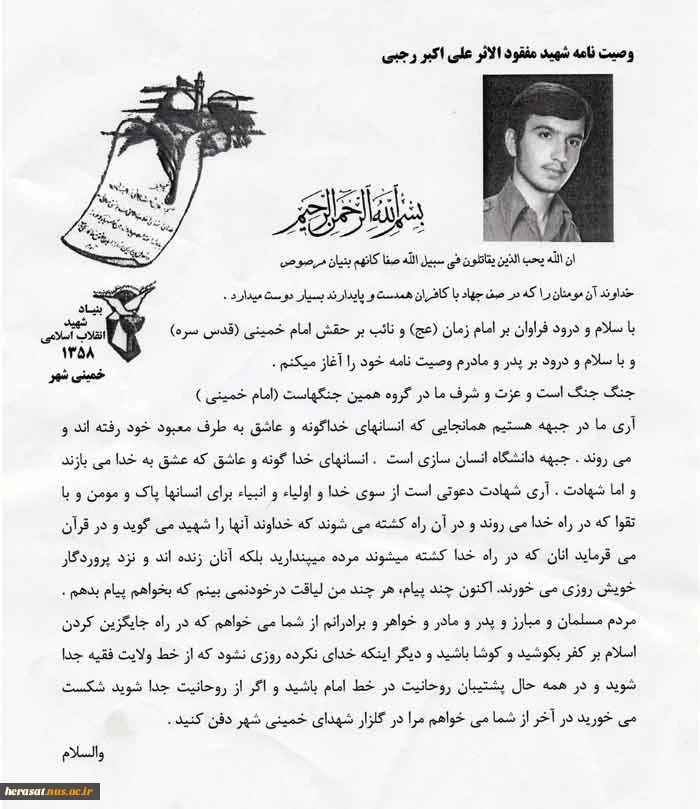 وصیت نامه شهید مفقود الاثر علی اکبر رجبی
بسم الله الرحمن الرحیم
ان الله یحب الذین یقاتلون فی سبیل الله صفا کانهم بنیان مرصوص
خداوند آن مومنان را که در صف جهاد با کافران همدست و پایدارند بسیار دوست میدارد .
بنیاد
شهید
انقلاب اسلامی
۱۳۵۸
خمینی شهر
با سلام و درود فراوان بر امام زمان (عج) و نائب بر حقش امام خمینی (قدس سره)
و با سلام و درود بر پدر و مادرم وصیت نامه خود را آغاز میکنم .
جنگ جنگ است و عزت و شرف ما در گروه همین جنگهاست (امام خمینی )
آری ما در جبهه هستیم همانجایی که انسانهای خداگونه و عاشق به طرف معبود خود رفته اند و
می روند . جبهه دانشگاه انسان سازی است . انسانهای خدا گونه و عاشق که عشق به خدا می بازند
و اما شهادت . آری شهادت دعوتی است از سوی خدا و اولیاء و انبیاء برای انسانها پاک و مومن و با
تقوا که در راه خدا می روند و در آن راه کشته می شوند که خداوند آنها را شهید می گوید و در قرآن
می قرماید انان که در راه خدا کشته میشوند مرده میپندارید بلکه آنان زنده اند و نزد پروردگار
خویش روزی می خورند. اکنون چند پیام، هر چند من لیاقت درخودنمی بینم که بخواهم پیام بدهم .
مردم مسلمان و مبارز و پدر و مادر و خواهر و برادرانم از شما می خواهم که در راه جایگزین کردن
اسلام بر کفر بکوشید و کوشا باشید و دیگر اینکه خدای نکرده روزی نشود که از خط ولایت فقیه جدا
شوید و در همه حال پشتیبان روحانیت در خط امام باشید و اگر از روحانیت جدا شوید شکست
می خورید در آخر از شما می خواهم مرا در گلزار شهدای خمینی شهر دفن کنید .
والسلام
herasat.nus.ac.ir